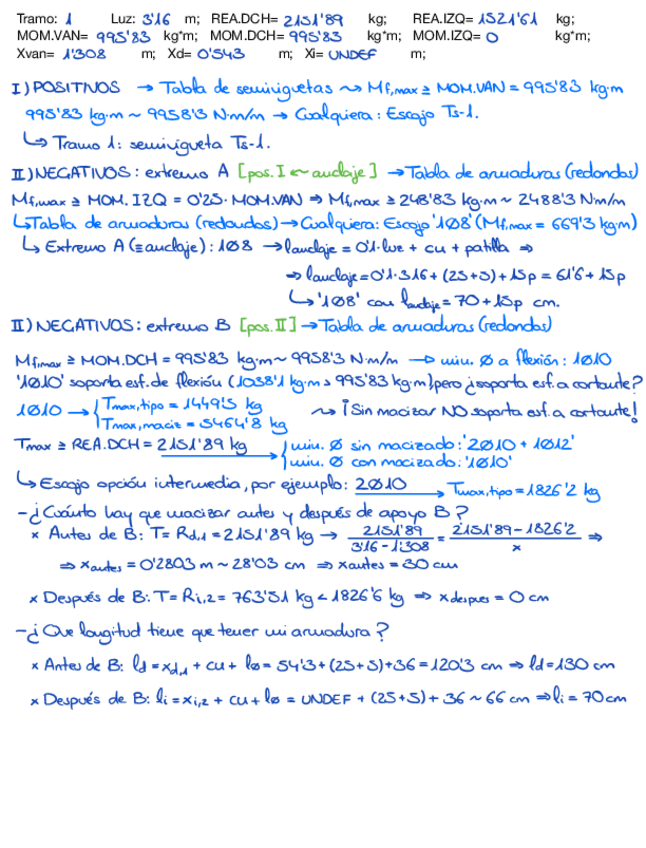 Tramo: 1 Luz: 3'16 m; REA.DCH= 2151'89 kg; REA.IZQ= 1521'61 kg;
MOM.VAN= 995'83 kg*m; MOM.DCH= 995'83 kg*m; MOM.IZQ= 0 kg*m;
Xvan= 1'308 m; Xd= 0'543 m; Xi= UNDEF m;
I) POSITIVOS → Tabla de semiviguetas ⤳ Mf,max ≥ MOM.VAN = 995'83 kg·m
995'83 kg·m ~ 9958'3 N·m/m → Cualquiera: Escojo Ts-1.
↳ Tramo 1: semivigueta Ts-1.
II) NEGATIVOS: extremo A [pos. I ← anclaje] → Tabla de armaduras (redondos)
Mf,max ≥ MOM. IZQ = 0'25· MOM.VAN ⇒ Mf,max ≥ 248'83 kg·m ~ 2488'3 N·m/m
↳ Tabla de armaduras (redondos) → Cualquiera: Escojo '1Ø8' (Mf,max = 669'3 kg·m)
↳ Extremo A (≡ anclaje): 1Ø8 → lanclaje = 0'1·luz + cu + patilla ⇒
⇒ lanclaje = 0'1·316 + (25+5) + 15p = 61'6 + 15p
↳ '1Ø8' con lanclaje = 70 + 15p cm.
II) NEGATIVOS: extremo B [pos. II] → Tabla de armaduras (redondos)
Mf,max ≥ MOM.DCH = 995'83 kg·m ~ 9958'3 N·m/m → mín. Ø a flexión: 1Ø10
'1Ø10' soporta esf. de flexión (1038'1 kg·m > 995'83 kg·m) pero ¿soporta esf. a cortante?
1Ø10 → { Tmax,tipo = 1449'5 kg
Tmax,maciz = 5464'8 kg ⤳ ¡Sin macizar NO soporta esf. a cortante!
Tmax ≥ REA.DCH = 2151'89 kg → { mín. Ø sin macizado: '2Ø10 + 1Ø12'
mín. Ø con macizado: '1Ø10'
↳ Escojo opción intermedia, por ejemplo: 2Ø10 → Tmax,tipo = 1826'2 kg
- ¿Cuánto hay que macizar antes y después de apoyo B?
× Antes de B: T = Rd,1 = 2151'89 kg → 2151'89 / 3'16 - 1'308 = 2151'89 - 1826'2 / x ⇒
⇒ xantes = 0'2803 m ~ 28'03 cm ⇒ xantes = 30 cm
× Después de B: T = Ri,2 = 763'51 kg < 1826'6 kg ⇒ xdespues = 0 cm
- ¿Que longitud tiene que tener mi armadura?
× Antes de B: ld = xd,1 + cu + lø = 54'3 + (25+5) + 36 = 120'3 cm ⇒ ld = 130 cm
× Después de B: li = xi,2 + cu + lø = UNDEF + (25+5) + 36 ~ 66 cm ⇒ li = 70 cm